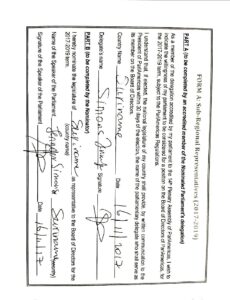 FORM A: Sub-Regional Representatives (2017-2019)
PART A (to be completed by an accredited member of the Nominated Parliament's delegation)
As a member of the delegation accredited by my parliament to the 14th Plenary Assembly of ParlAmericas, I wish to
indicate my willingness of my parliament to be considered for a position on the Board of Directors of ParlAmericas, for
the 2017-2019 term, subject to the ParlAmericas Regulations.
I understand that, if elected, the national legislature of my country shall provide, by written communication to the
President of ParlAmericas within 30 days of the election, the name of the parliamentary delegate who shall serve as
its member on the Board of Directors.
Country Name Suriname Date 16/11/2017
Delegate's name Signature
PART B (to be completed by the Nominator)
I hereby nominate the legislature of Suriname as representative to the Board of Directors for the
2017-2019 term. (country name)
Name of the Speaker of the Parliament Suriname (country)
Signature of the Speaker of the Parliament Date